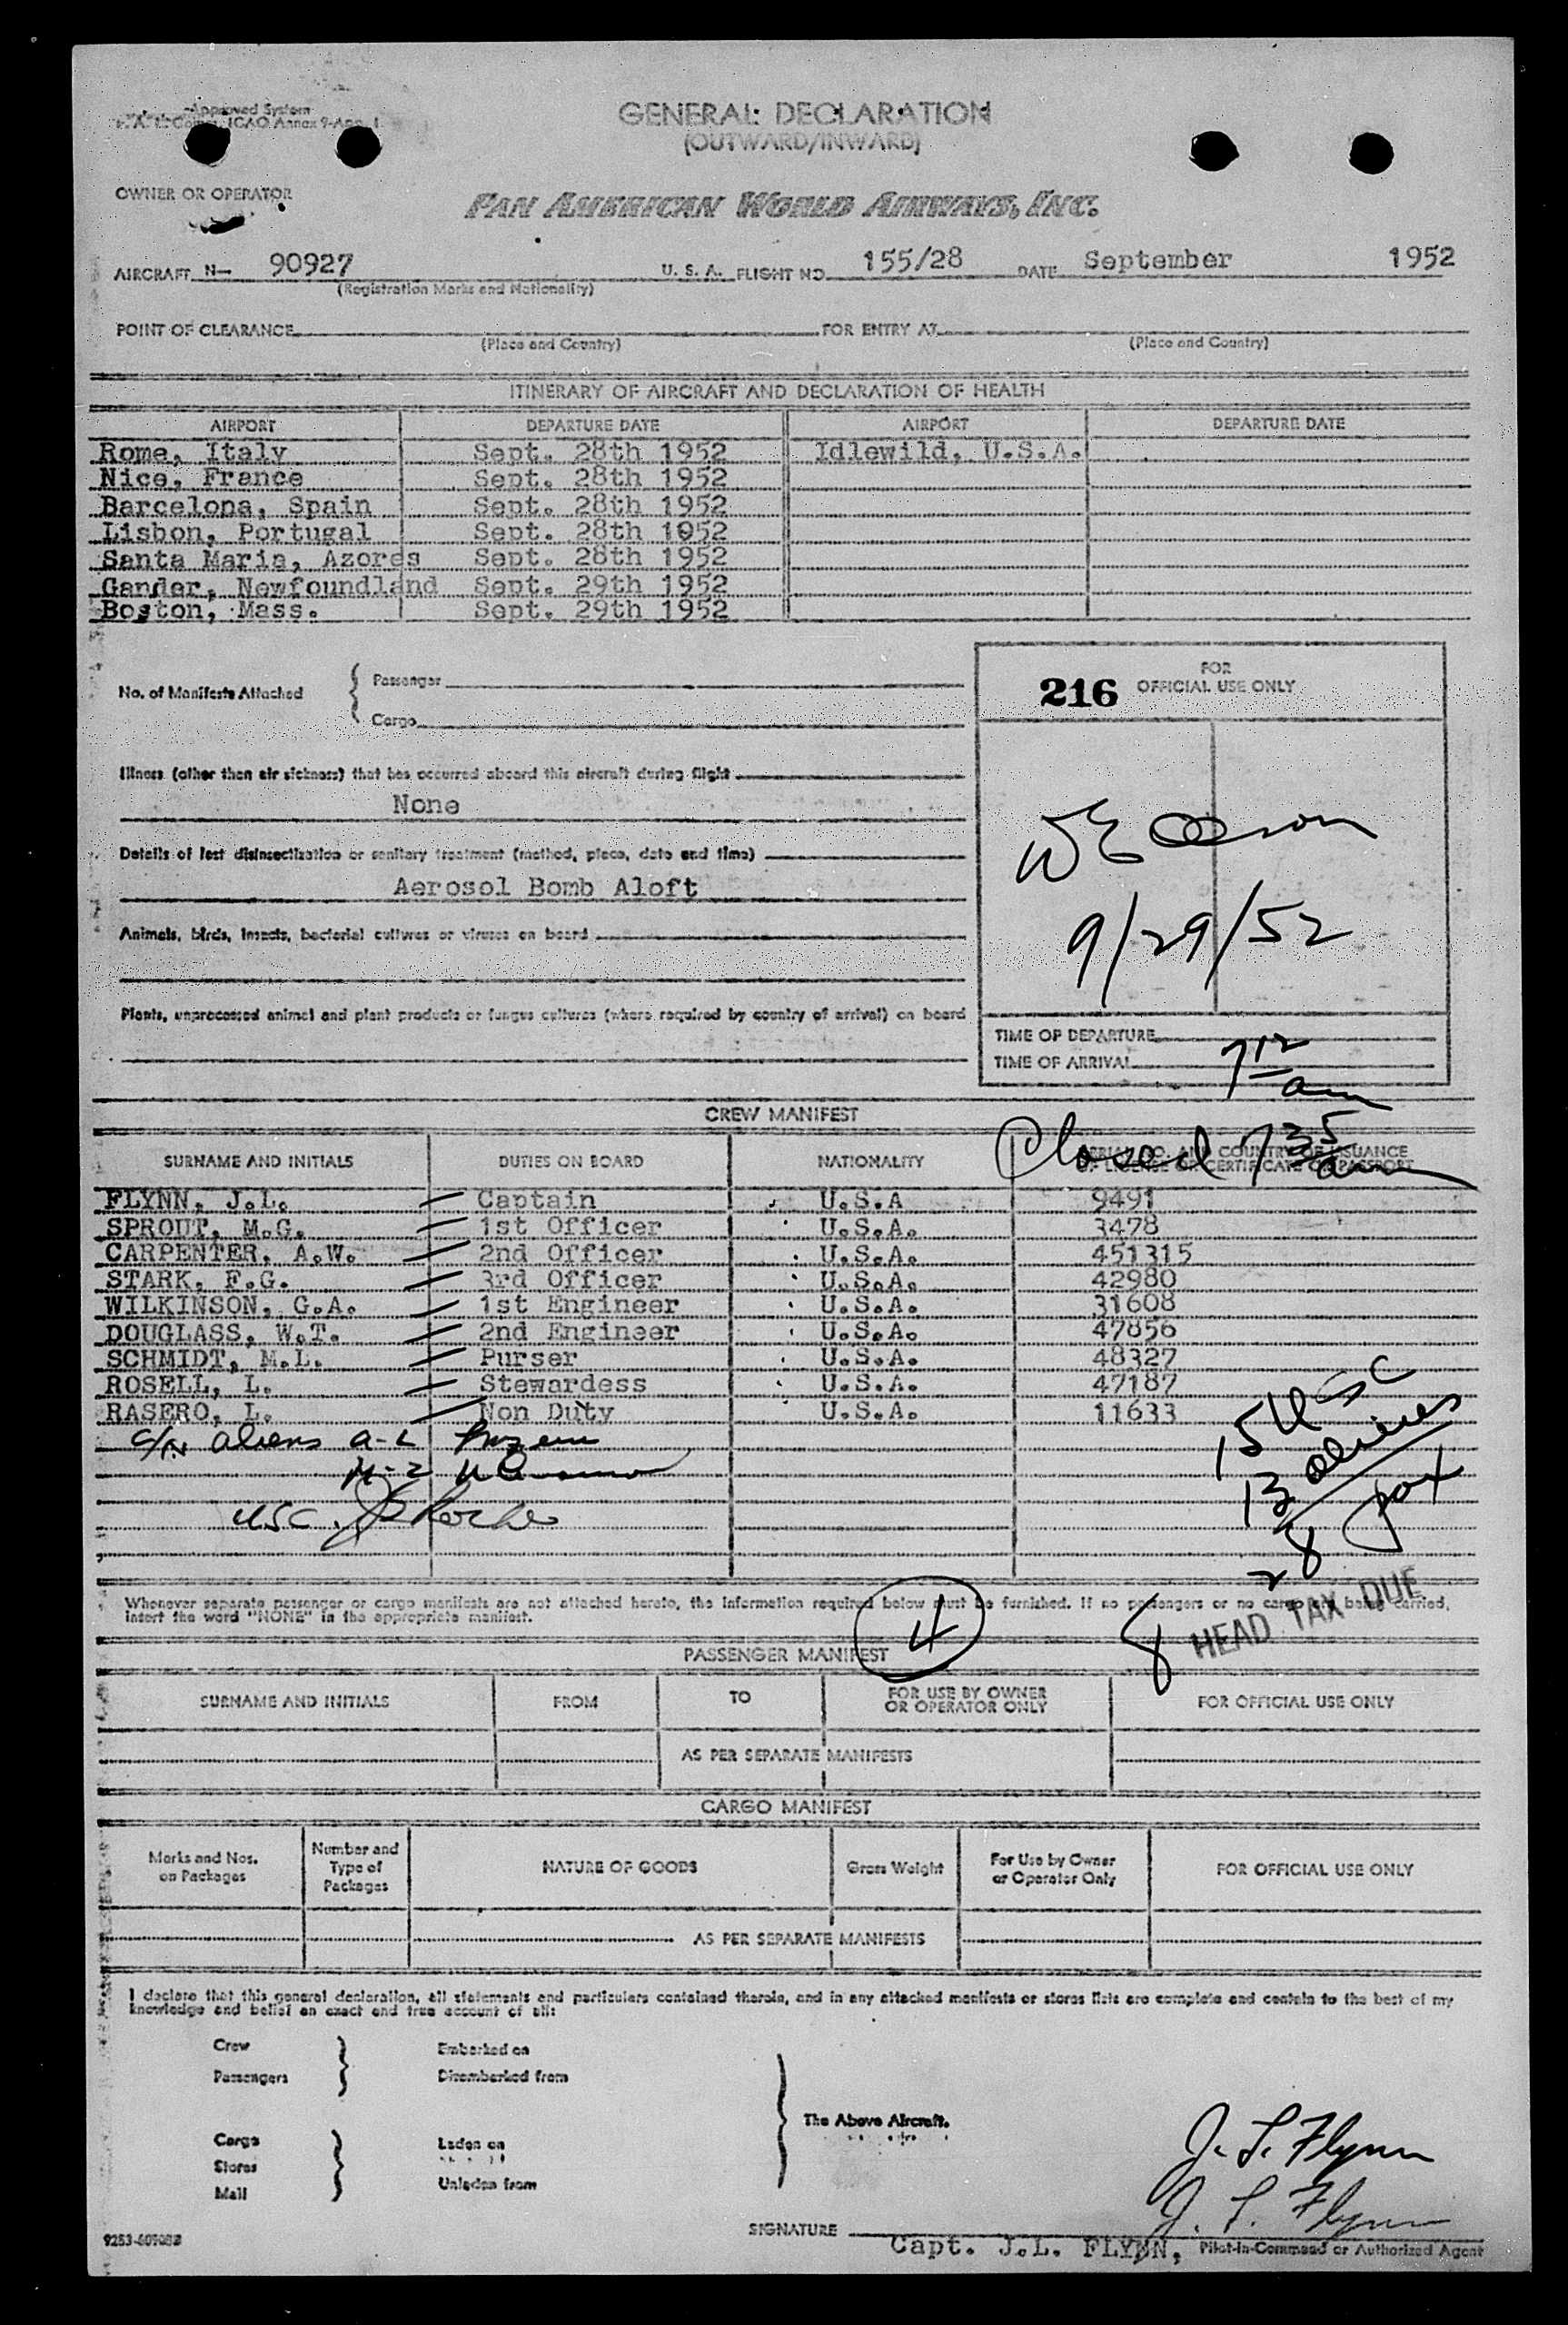 Approved System
GENERAL DECLARATION
(OUTWARD/INWARD)
OWNER OR OPERATOR
PAN AMERICAN WORLD AIRWAYS, INC.
AIRCRAFT N- 90927 U. S. A. FLIGHT NO. 155/28 DATE September 1952
(Registration Marks and Nationality)
POINT OF CLEARANCE FOR ENTRY AT
(Place and Country) (Place and Country)
ITINERARY OF AIRCRAFT AND DECLARATION OF HEALTH
AIRPORT DEPARTURE DATE AIRPORT DEPARTURE DATE
Rome, Italy Sept. 28th 1952 Idlewild, U.S.A.
Nice, France Sept. 28th 1952
Barcelona, Spain Sept. 28th 1952
Lisbon, Portugal Sept. 28th 1952
Santa Maria, Azores Sept. 28th 1952
Gander, Newfoundland Sept. 29th 1952
Boston, Mass. Sept. 29th 1952
No. of Manifests Attached
Passenger
Cargo
216 FOR OFFICIAL USE ONLY
Illness (other than air sickness) that has occurred aboard this aircraft during flight
None
Details of last disinsectization or sanitary treatment (method, place, date and time)
Aerosol Bomb Aloft
9/29/52
Animals, birds, insects, bacterial cultures or viruses on board
Plants, unprocessed animal and plant products or fungus cultures (where required by country of arrival) on board
TIME OF DEPARTURE
TIME OF ARRIVAL 7 12 am
CREW MANIFEST
Closed 7 35 am
SURNAME AND INITIALS DUTIES ON BOARD NATIONALITY SERIAL NO. AND COUNTRY OF ISSUANCE
OF LICENSE OR CERTIFICATE OR PASSPORT
FLYNN, J.L. Captain U.S.A 9491
SPROUT, M.G. 1st Officer U.S.A. 3478
CARPENTER, A.W. 2nd Officer U.S.A. 451315
STARK, F.G. 3rd Officer U.S.A. 42980
WILKINSON, G.A. 1st Engineer U.S.A. 31608
DOUGLASS, W.T. 2nd Engineer U.S.A. 47856
SCHMIDT, M.L. Purser U.S.A. 48327
ROSELL, L. Stewardess U.S.A. 47187
RASERO, L. Non Duty U.S.A. 11633
aliens a-L
M-Z
USC
15 USC
13 aliens
28 pax
Whenever separate passenger or cargo manifests are not attached hereto, the information required below must be furnished. If no passengers or no cargo are being carried,
insert the word "NONE" in the appropriate manifest.
4
8 HEAD TAX DUE
PASSENGER MANIFEST
SURNAME AND INITIALS FROM TO FOR USE BY OWNER OR OPERATOR ONLY FOR OFFICIAL USE ONLY
AS PER SEPARATE MANIFESTS
CARGO MANIFEST
Marks and Nos. on Packages Number and Type of Packages NATURE OF GOODS Gross Weight For Use by Owner or Operator Only FOR OFFICIAL USE ONLY
AS PER SEPARATE MANIFESTS
I declare that this general declaration, all statements and particulars contained therein, and in any attached manifests or stores lists are complete and contain to the best of my
knowledge and belief an exact and true account of all:
Crew Embarked on
Passengers Disembarked from
The Above Aircraft.
Cargo Laden on
Stores
Mail Unladen from
J. L. Flynn
J. L. Flynn
SIGNATURE
Capt. J.L. FLYNN, Pilot-in-Command or Authorized Agent